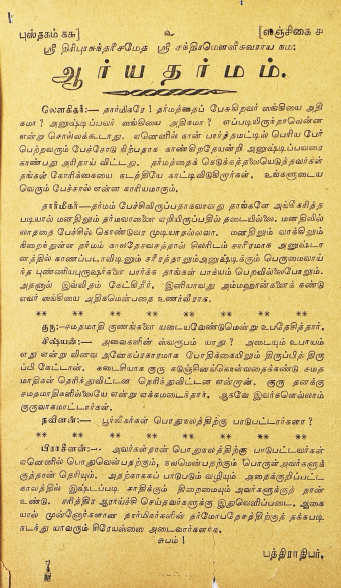 புஸ்தகம் கசு] ௨ [ஸஞ்சிகை ச
ஸ்ரீ திரிபுரசுந்தரீஸமேத ஸ்ரீ சந்திரமௌளீசுவராய நம:
ஆர்யதர்மம்.
லௌகிகர்:— தார்மிகரே! தர்மத்தைப் பேசுகிறவர் ஸங்கியை அதி
கமா? அனுஷ்டிப்பவர் ஸங்கியை அதிகமா? எப்படியிருந்தாலென்ன
என்று சொல்லக்கூடாது. ஏனெனில் நான் பார்த்தமட்டில் பெரிய பேர்
பெற்றவரும் பேச்சோடு நிற்பதாக காண்கிறதேயன்றி அனுஷ்டிப்பவரை
காண்பது அரிதாய் விட்டது. தர்மத்தைக் கெடுக்கத்தலையெடுத்தவர்கள்
தங்கள் கோரிக்கையை நடத்தியே காட்டிவிடுகிறார்கள். உங்களுடைய
வெறும் பேச்சால் என்ன காரியமாகும்.
தார்மீகர்—தர்மம் பேச்சிலிருப்பதாகவாவது தாங்களே அங்கீகரித்த
படியால் மனதிலும் தர்மவாஸனை ஏறியிருப்பதில் தடையில்லை. மனதிலில்
லாததை பேச்சில் கொண்டுவர முடியாதல்லவா. மனதிலும் வாக்கிலும்
நிறைந்துள்ள தர்மம் காலதேசவசத்தால் சிலரிடம் சாரீரமாக அனுஷ்டா
னத்தில் காணப்படாவிடினும் சரீரத்தாலும்அனுஷ்டிக்கும் பெருமைவாய்
ந்த புண்ணியபுருஷர்களை பார்க்க தாங்கள் பாக்யம் பெறவில்லைபோலும்.
அதனால் இவ்விதம் கேட்கிறீர். இனியாவது அம்மஹான்களைக் கண்டு
எவர் ஸங்கியை அதிகமென்பதை உணர்வீராக.
** ** ** ** ** ** **
குரு:—சமதமாதி குணங்களை யடையவேண்டுமென்று உபதேசித்தார்.
சிஷ்யன்:— அவைகளின் ஸ்வரூபம் யாது? அடையும் உபாயம்
எது என்று வினவ அனேகப்ரகாரமாக போதிக்கையிலும் திருப்பித் திரு
ப்பி கேட்டான். கடைசியாக குரு கடுஞ்சினங்கொள்வதைக்கண்டு சமத
மாதிகள் தெரிந்துவிட்டன தெரிந்துவிட்டன என்றான். குரு தனக்கு
சமதமாதிகளில்லையே என்று ஏக்கமடைந்தார். ஆகவே இவர்களெல்லாம்
குருவாகமாட்டார்கள்.
நவீனன்:— பூர்வீகர்கள் பொதுநலத்திற்கு பாடுபட்டார்களா?
** ** ** ** ** ** **
பிராசீனன்:— அவர்கள்தான் பொதுநலத்திற்கு பாடுபட்டவர்கள்
ஏனெனில் பொதுவென்பதற்கும், நலமென்பதற்கும் பொருள்அவர்களுக்
குத்தான் தெரியும். அதற்காகப் பாடுபடும் வழியும் அதைக்குறிப்பட்ட
காலத்தில் இஷ்டப்படி சாதிக்கும் திறமையும் அவர்களுக்குத் தான்
உண்டு. சரித்திர ஆராய்ச்சி செய்தவர்களுக்கு இதுவெளிப்படை. ஆகை
யால் முன்னோர்களான தார்மீகர்களின் தர்மோபதேசத்திற்குத் தக்கபடி
நடந்து யாவரும் சிரேயஸ்ஸை அடைவார்களாக.
சுபம்!
பத்திராதிபர்,